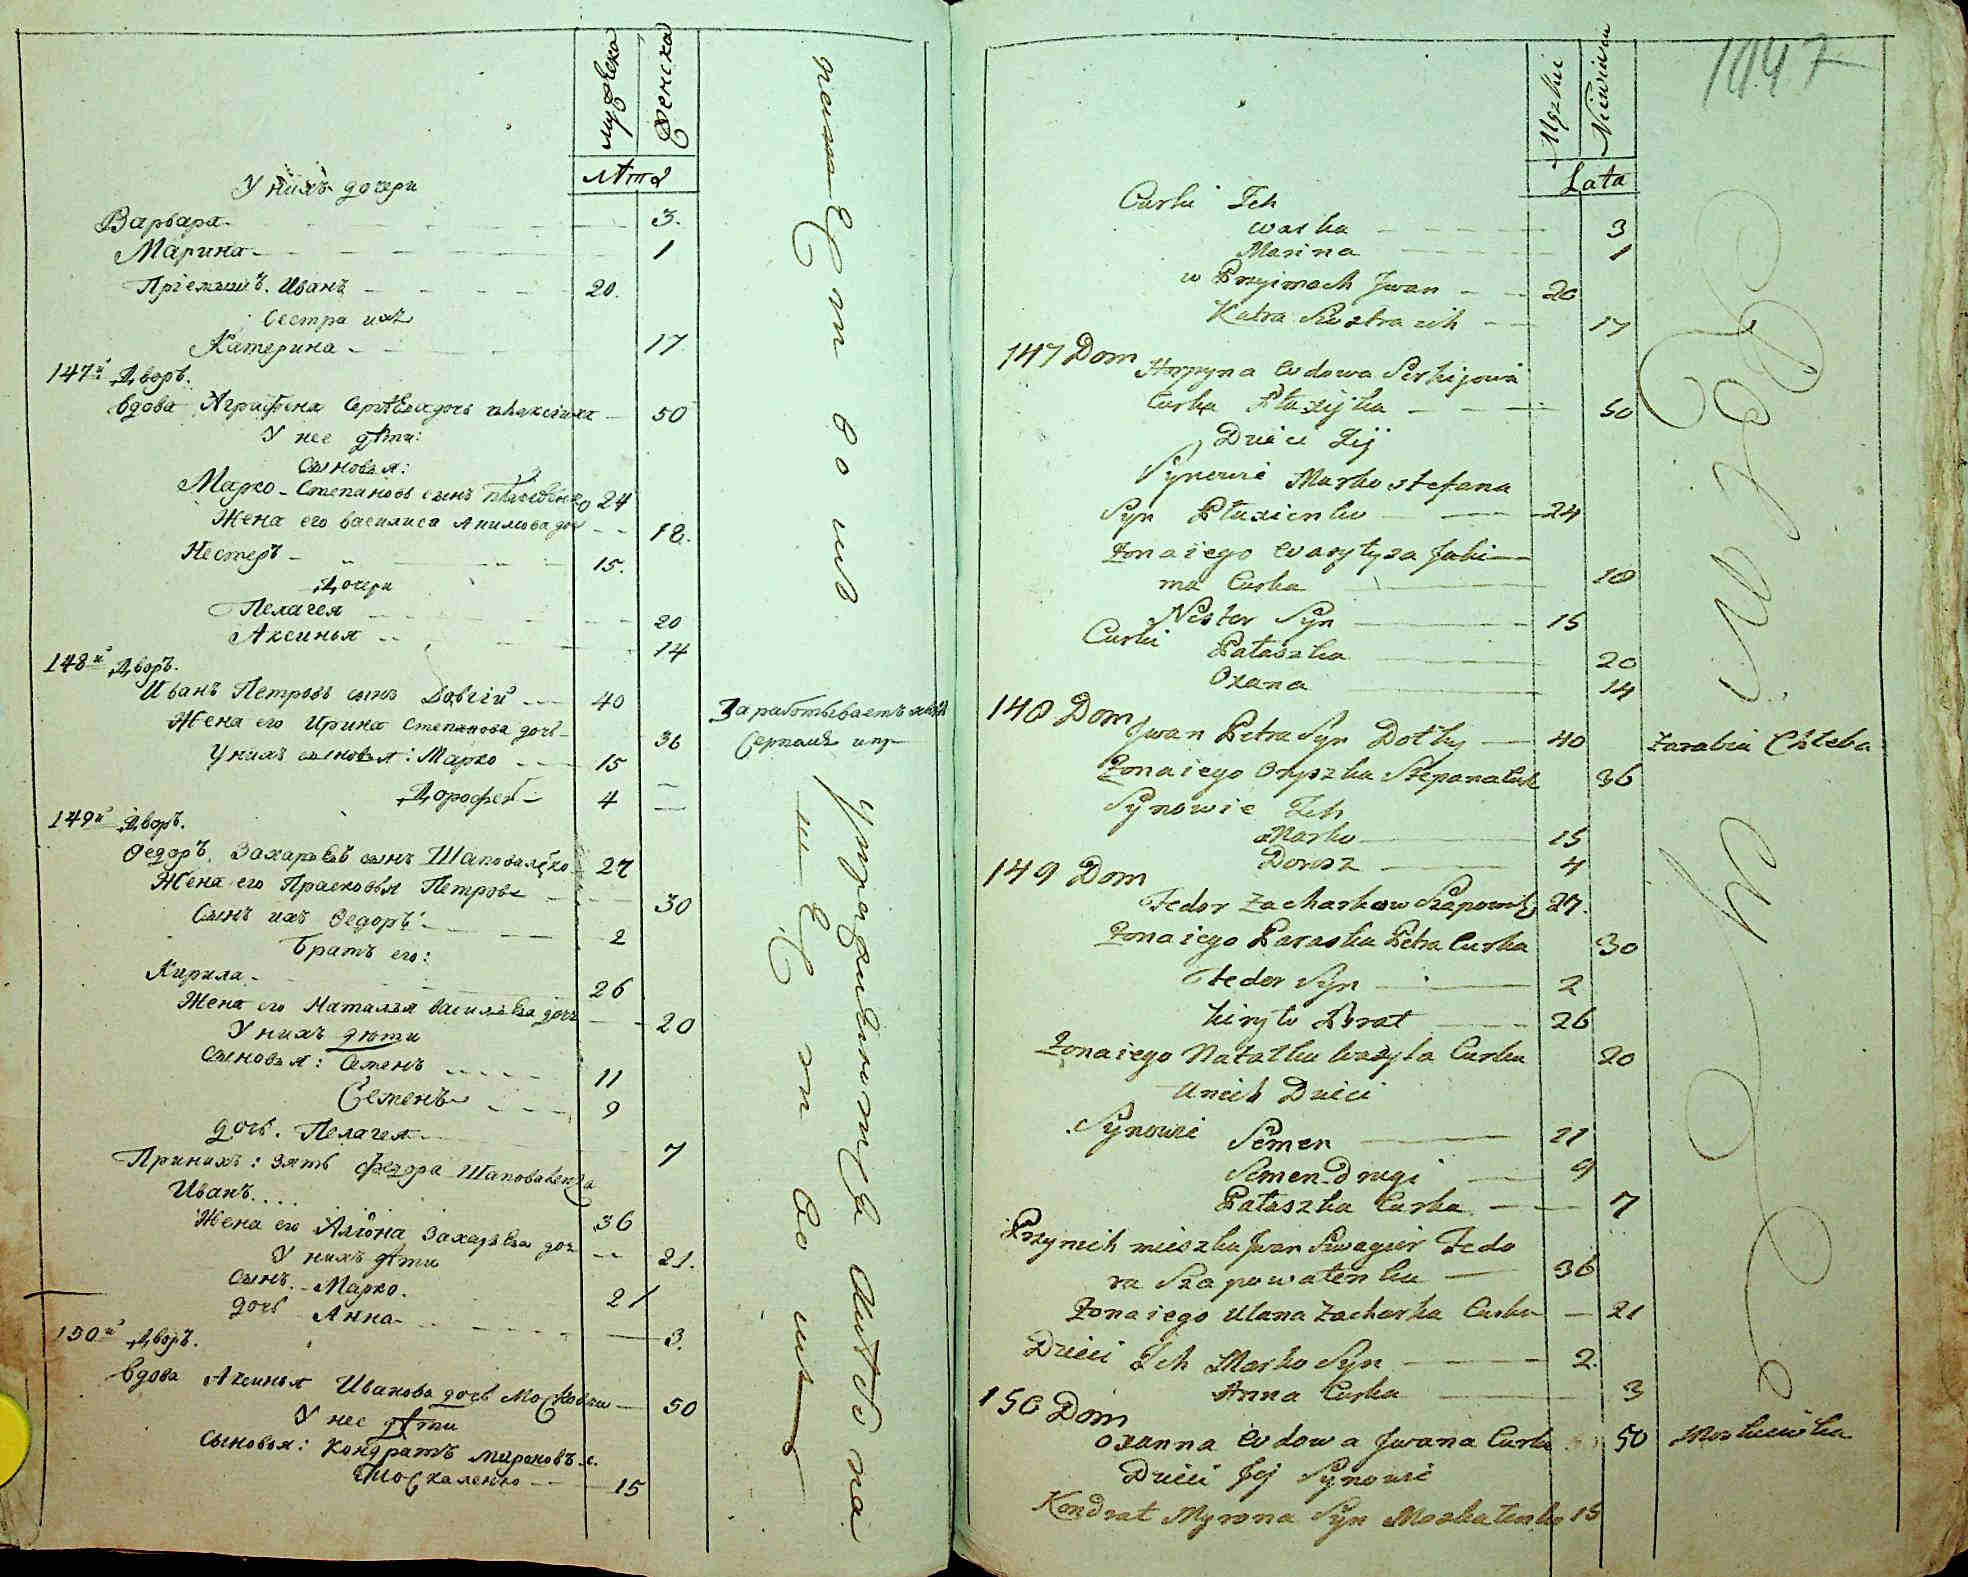 мужеска
женска
лѣта
У нихъ дочери
Варвара 3.
Марина 1
Пріемышъ. Иванъ 20.
Сестра ихъ
Катерина 17
147й Дворъ.
Вдова Аграфена Сергѣева дочь 50
У нее дѣти:
Сыновья:
Марко Степановъ сынъ 24
Жена его Василиса Акимова доч 18.
Нестеръ 15.
Дочери
Пелагея 20
Аксинья 14
148й Дворъ.
Иванъ Петровъ сынъ Довгій 40
Жена его Ирина Степанова дочь 36
У нихъ сыновья: Марко 15
Дорофей 4
149й Дворъ.
Федоръ Захарьевъ сынъ Шаповаленко 27
Жена его Прасковья Петрова 30
Сынъ ихъ Федоръ 2
Братъ его:
Кирила 26
Жена его Наталья Васильева дочь 20
У нихъ дѣти
Сыновья: Семенъ 11
Семенъ 9
дочь. Пелагея 7
При нихъ: зять Федора Шаповаленка
Иванъ 36
Жена его Аліона Захарьева доч 21.
У нихъ дѣти
Сынъ Марко. 2
дочь Анна 3.
150й Дворъ.
Вдова Аксинья Иванова дочь Московка 50
У нее дѣти
Сыновья: Кондратъ Мироновъ с.
Москаленко 15
Зарабтываетъ хлѣбъ
Серпомъ
1047
Męzkie
Niewiescie
Lata
Curki Ich
Warka 3
Marina 1
w Pryimach Jwan 20
Katra Siostra ich 17
147 Dom
Horpyna Wdowa Serhijowa
Curka Płaxijka 50
Dzieci Jej
Synowie Marko Stefana
Syn Płaxienko 24
Żona iego Wasyłysa Jaki
ma Curka 18
Nester Syn 15
Curki Pałaszka 20
Oxana 14
148 Dom
Jwan Petra Syn Dołhy 40
Zarabia Chleba
Żona iego Oryszka Stepana Curk 36
Synowie Ich
Marko 15
Dorosz 4
149 Dom
Fedor Zacharkow Szapował 27.
Żona iego Paraska Petra Curka 30
Fedor Syn 2
Kiryło Brat 26
Żona iego Natałka Wasyla Curka 20
U nich Dzieci
Synowie Semen 11
Semen Drugi 9
Pałaszka Curka 7
Przy nich mieszka Jwan Szwagier Fedo
ra Szapowałenka 36
Żona iego Ulana Zacharka Curka 21
Dzieci Ich Marko Syn 2.
Anna Curka 3
150 Dom
Oxanna Wdowa Jwana Curka 50
Moskiewka
Dzieci Jej Synowie
Kondrat Myrona Syn Moskalenko 15